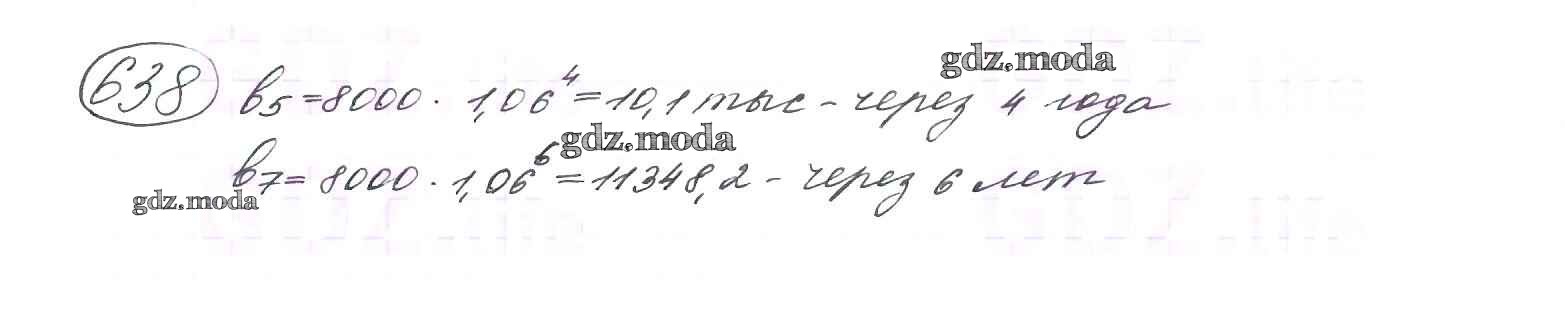 gdz.moda
638 b₅ = 8000 · 1,06⁴ = 10,1 тыс - через 4 года
gdz.moda
b₇ = 8000 · 1,06⁶ = 11348,2 - через 6 лет
gdz.moda